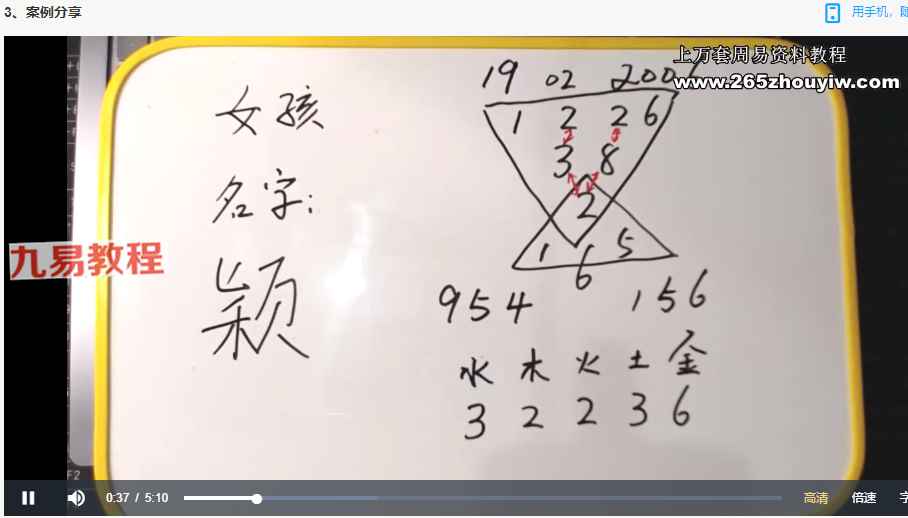 3、案例分享
用手机，
上万套周易资料教程
www.265zhouyiw.com
19 02 200
女孩
1 2 2 6
3 8
名字：
2
九易教程
1 6 5
6
颖
954 156
水 木 火 土 金
3 2 2 3 6
0:37 / 5:10
高清 倍速 字